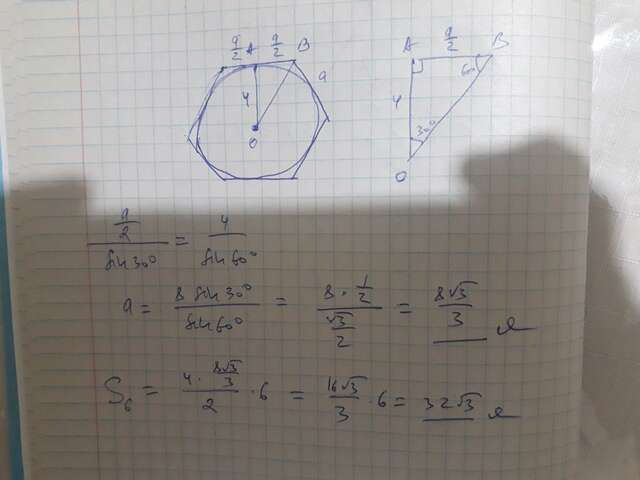 a/2 A a/2 B
a
4
O
A a/2 B
60°
4
30°
O
(a/2)/(sin 30°) = 4/(sin 60°)
a = (8 sin 30°)/(sin 60°) = (8 · 1/2)/(√3/2) = 8√3/3
S₆ = (4 · 8√3/3)/2 · 6 = 16√3/3 · 6 = 32√3